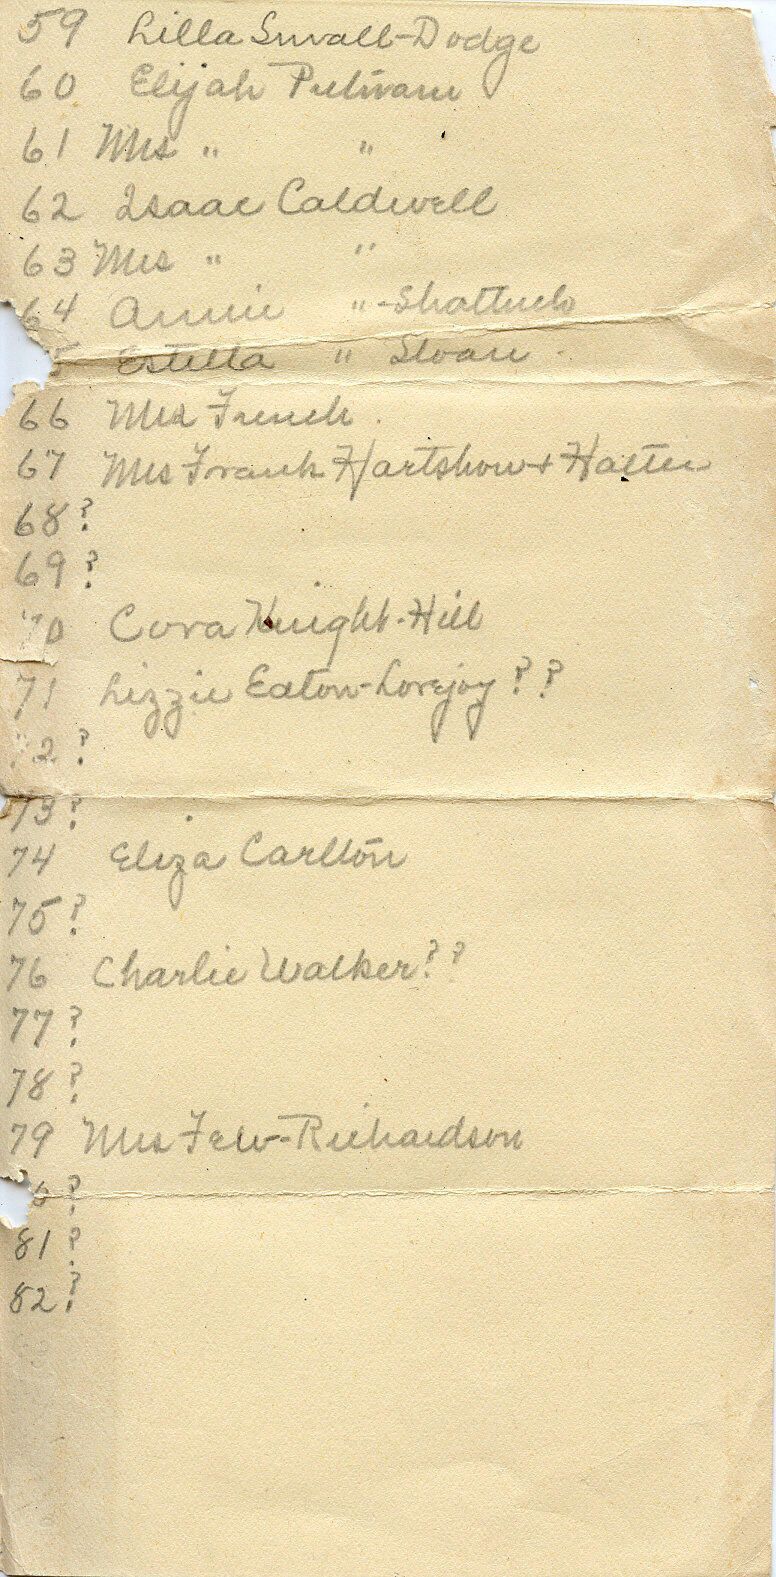 59 Lilla Duvall-Dodge
60 Elijah Putnam
61 Mrs " "
62 Isaac Caldwell
63 Mrs " "
64 Annie "-Shattuck
5 Estella " Sloan
66 Mrs French
67 Mrs Frank Hartshorn + Hattie
68?
69?
70 Cora Knight-Hill
71 Lizzie Eaton-Lovejoy ??
72?
73?
74 Eliza Carlton
75?
76 Charlie Walker??
77?
78?
79 Mrs Few-Richardson
0?
81?
82?